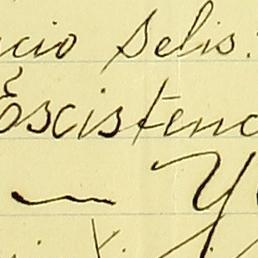 cio Selis.
Escistenc
— Y